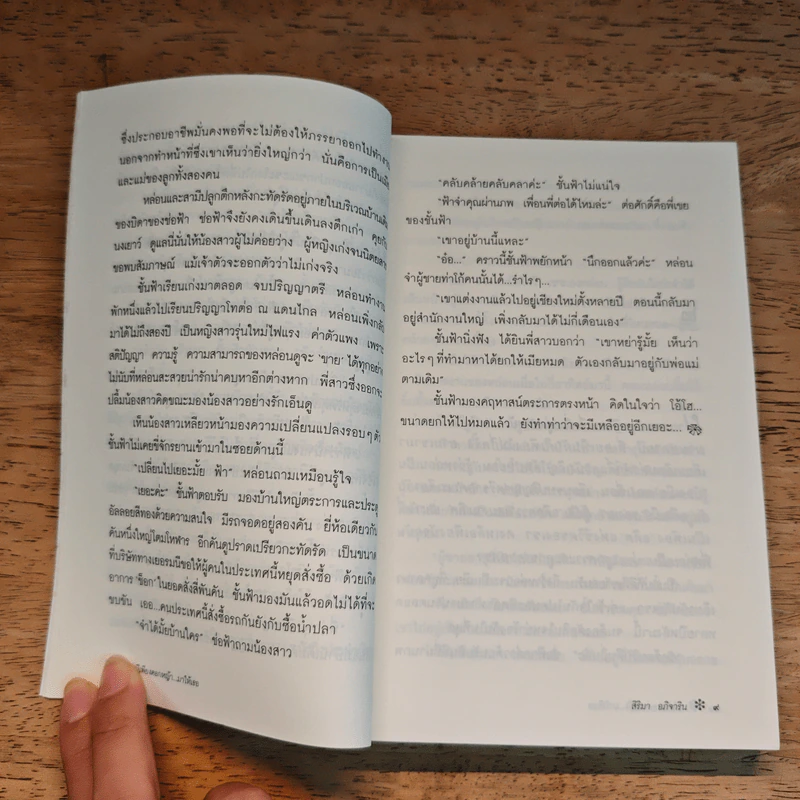 ซึ่งประกอบอาชีพมั่นคงพอที่จะไม่ต้องให้ภรรยาออกไปทำงาน
นอกจากทำหน้าที่ซึ่งเขาเห็นว่ายิ่งใหญ่กว่า นั่นคือการเป็น
และแม่ของลูกทั้งสองคน
หล่อนและสามีปลูกตึกหลังกะทัดรัดอยู่ภายในบริเวณบ้าน
ของบิดาของช่อฟ้า ช่อฟ้าจึงยังคงเดินขึ้นเดินลงตึกเก่า คุย
นงเยาว์ ดูแลนี่นั่นให้น้องสาวผู้ไม่ค่อยว่าง ผู้หญิงเก่งจน
ขอพบสัมภาษณ์ แม้เจ้าตัวจะออกตัวว่าไม่เก่งจริง
ชั้นฟ้าเรียนเก่งมาตลอด จบปริญญาตรี หล่อนทำงาน
พักหนึ่งแล้วไปเรียนปริญญาโทต่อ ณ แดนไกล หล่อนเพิ่งกลับ
มาได้ไม่ถึงสองปี เป็นหญิงสาวรุ่นใหม่ไฟแรง ค่าตัวแพง เพราะ
สติปัญญา ความรู้ ความสามารถของหล่อนดูจะ ‘ขาย’ ได้ทุกอย่าง
ไม่นับที่หล่อนสะสวยน่ารักน่าคบหาอีกต่างหาก พี่สาวซึ่งออกจะ
ปลื้มน้องสาวคิดขณะมองน้องสาวอย่างรักเอ็นดู
เห็นน้องสาวเหลียวหน้ามองความเปลี่ยนแปลงรอบๆ ตัว
ชั้นฟ้าไม่เคยขี่จักรยานเข้ามาในซอยด้านนี้
“เปลี่ยนไปเยอะมั้ย ฟ้า” หล่อนถามเหมือนรู้ใจ
“เยอะค่ะ” ชั้นฟ้าตอบรับ มองบ้านใหญ่ตระการและประตู
อัลลอยสีทองด้วยความสนใจ มีรถจอดอยู่สองคัน ยี่ห้อเดียวกัน
คันหนึ่งใหญ่โตมโหฬาร อีกคันดูปราดเปรียวกะทัดรัด เป็นขนาด
ที่บริษัททางเยอรมนีขอให้ผู้คนในประเทศนี้หยุดสั่งซื้อ ด้วยเกิด
อาการ ‘ช็อก’ ในยอดสั่งสี่พันคัน ชั้นฟ้ามองมันแล้วอดไม่ได้ที่จะ
ขบขัน เออ...คนประเทศนี้สั่งซื้อรถกันยังกับซื้อน้ำปลา
“จำได้มั้ยบ้านใคร” ช่อฟ้าถามน้องสาว
“คลับคล้ายคลับคลาค่ะ” ชั้นฟ้าไม่แน่ใจ
“ฟ้าจำคุณผ่านภพ เพื่อนพี่ต่อได้ไหมล่ะ” ต่อศักดิ์คือพี่เขย
ของชั้นฟ้า
“เขาอยู่บ้านนี้แหละ”
“อ๋อ...” คราวนี้ชั้นฟ้าพยักหน้า “นึกออกแล้วค่ะ” หล่อน
จำผู้ชายท่าโก้คนนั้นได้...รำไรๆ...
“เขาแต่งงานแล้วไปอยู่เชียงใหม่ตั้งหลายปี ตอนนี้กลับมา
อยู่สำนักงานใหญ่ เพิ่งกลับมาได้ไม่กี่เดือนเอง”
ชั้นฟ้านิ่งฟัง ได้ยินพี่สาวบอกว่า “เขาหย่ารู้มั้ย เห็นว่า
อะไรๆ ที่ทำมาหาได้ยกให้เมียหมด ตัวเองกลับมาอยู่กับพ่อแม่
ตามเดิม”
ชั้นฟ้ามองคฤหาสน์ตระการตรงหน้า คิดในใจว่า โอ้โฮ...
ขนาดยกให้ไปหมดแล้ว ยังทำท่าว่าจะมีเหลืออยู่อีกเยอะ...
ดอกหญ้า...มาให้เธอ
สิริมา อภิจาริน ๙